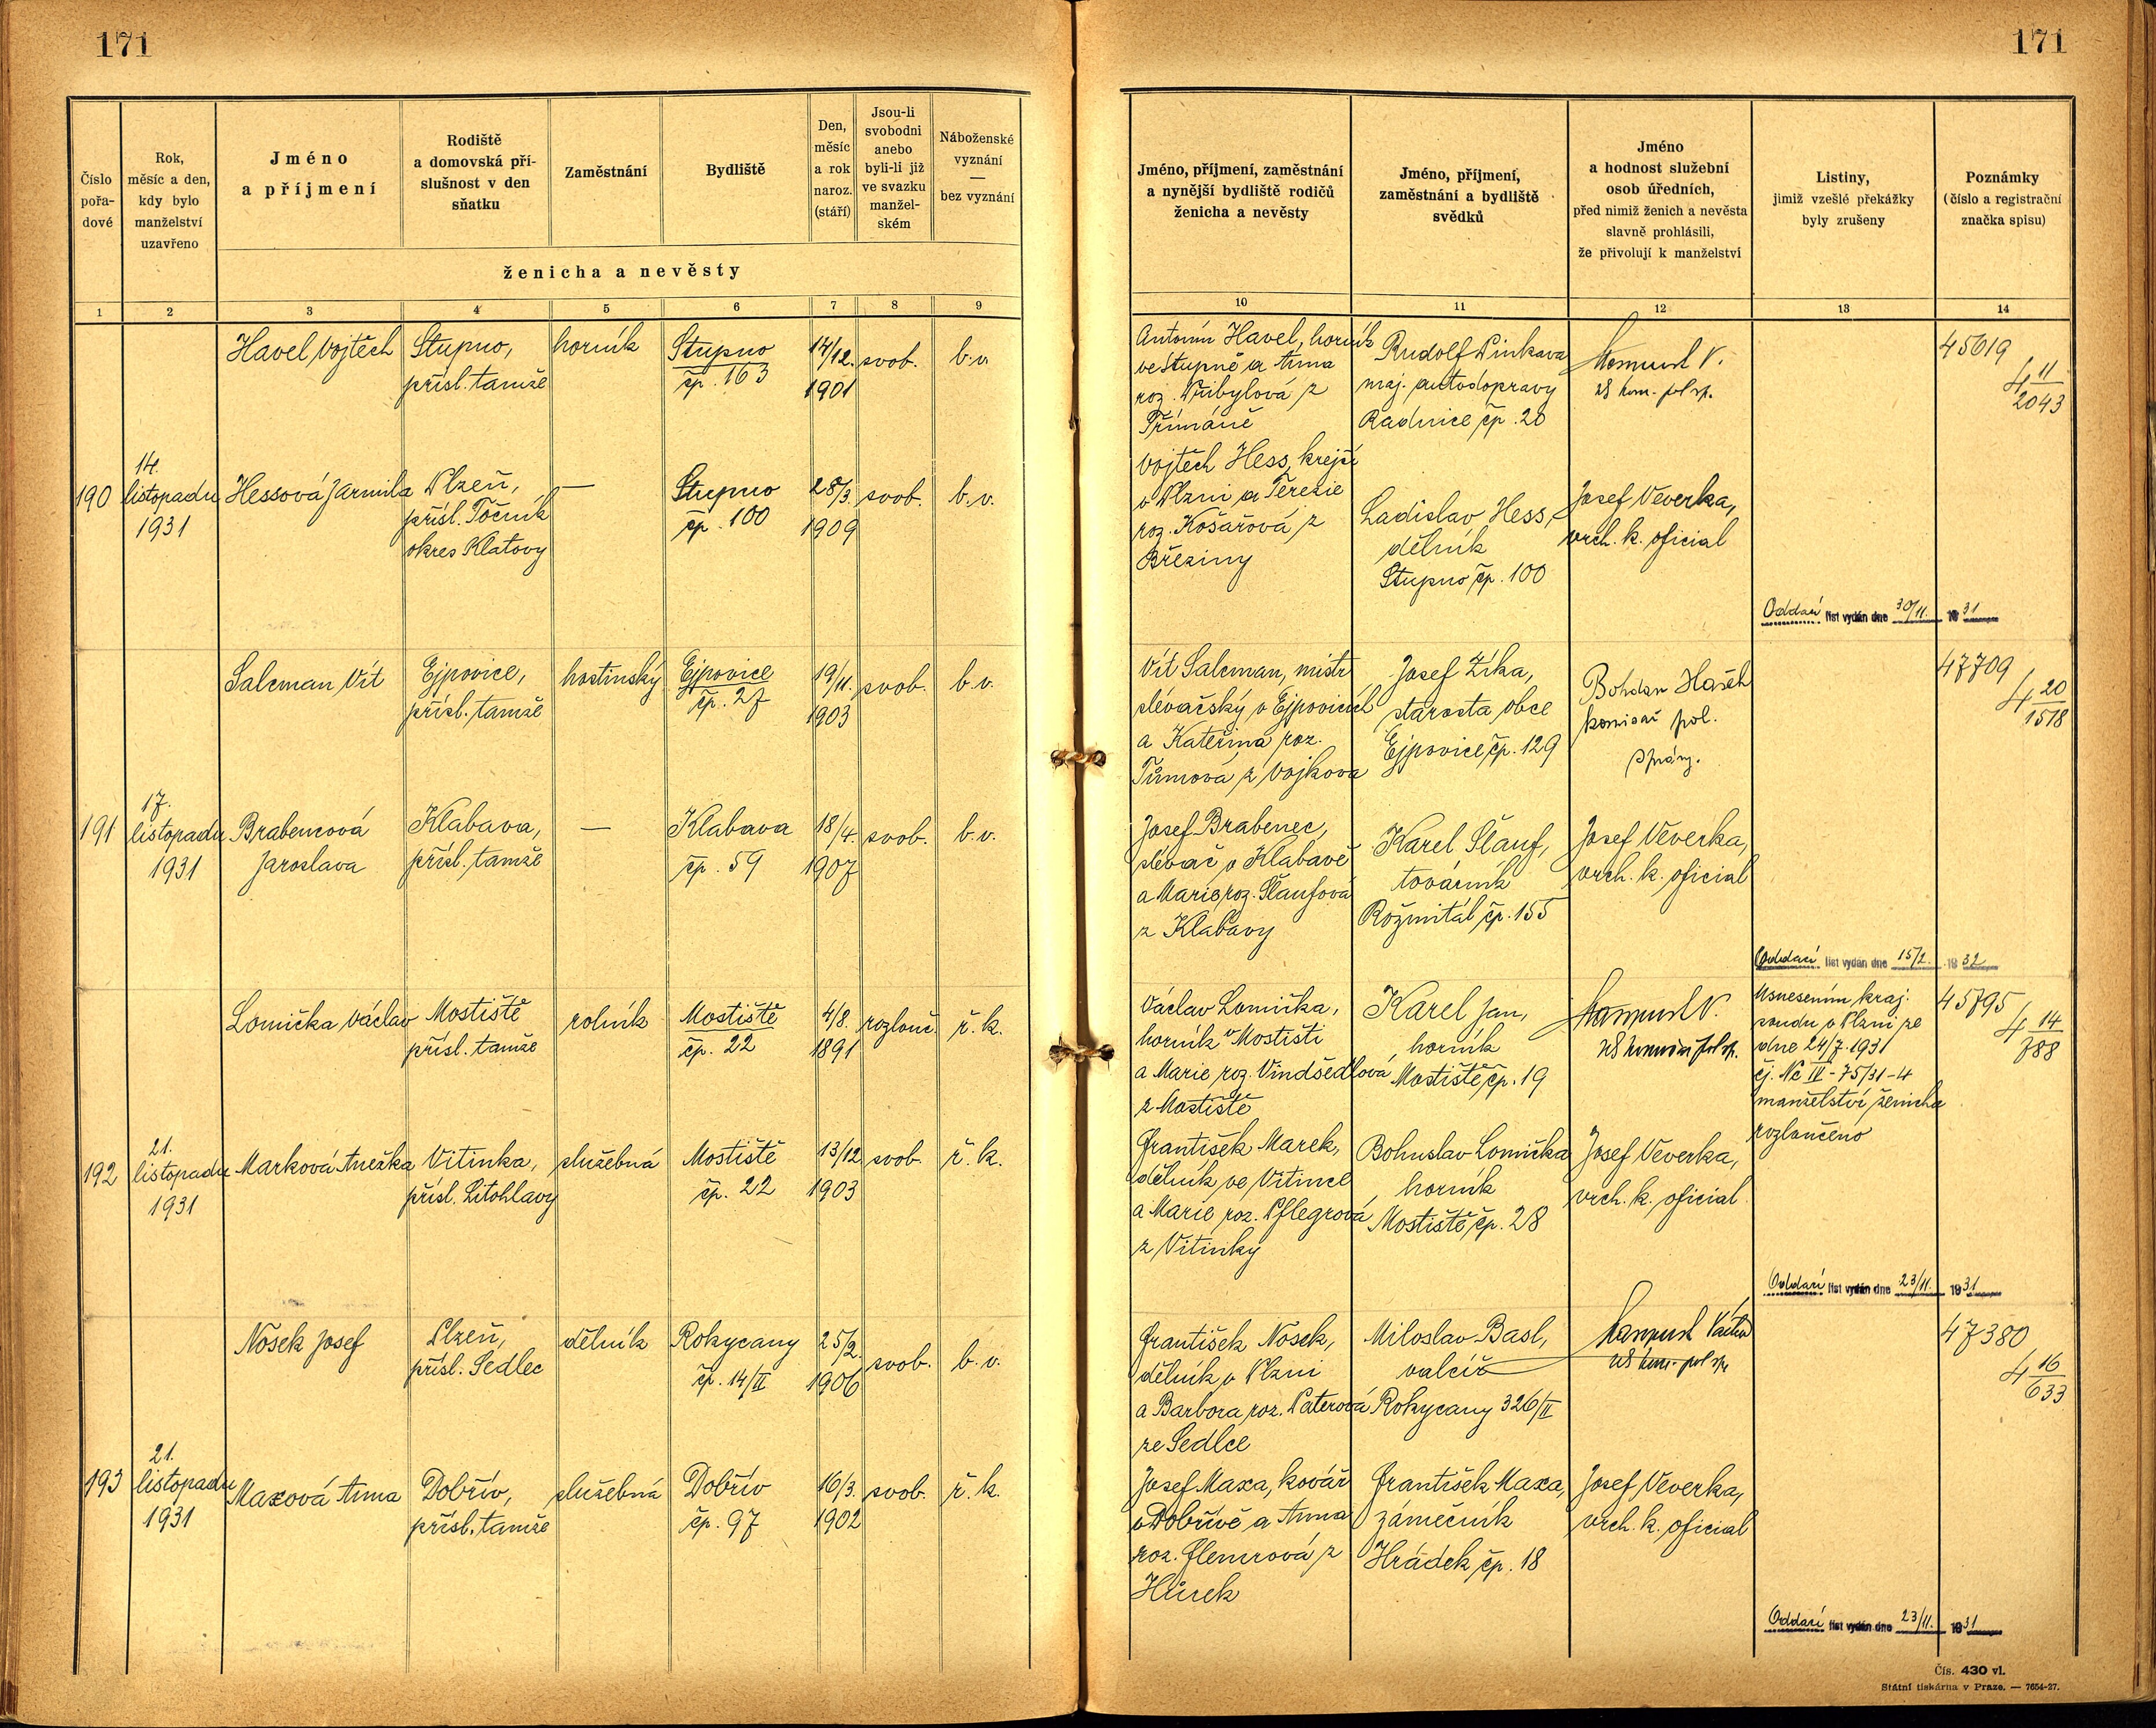 171
171
Číslo pořa-dové
Rok, měsíc a den, kdy bylo manželství uzavřeno
Jméno a příjmení
Rodiště a domovská pří-slušnost v den sňatku
Zaměstnání
Bydliště
Den, měsíc a rok naroz. (stáří)
Jsou-li svobodni anebo byli-li již ve svazku manžel-ském
Náboženské vyznání — bez vyznání
ženicha a nevěsty
Jméno, příjmení, zaměstnání a nynější bydliště rodičů ženicha a nevěsty
Jméno, příjmení, zaměstnání a bydliště svědků
Jméno a hodnost služební osob úředních, před nimiž ženich a nevěsta slavně prohlásili, že přivolují k manželství
Listiny, jimiž vzešlé překážky byly zrušeny
Poznámky (číslo a registrační značka spisu)
1 2 3 4 5 6 7 8 9 10 11 12 13 14
Havel Vojtěch
Stupno,
přísl. tamže
horník
Stupno
čp. 163
14/12.
1901
svob.
b.v.
Antonín Havel, horník
ve Stupně a Anna
roz. Přibylová z
Třímáně
Rudolf Pinkava
maj. autodopravy
Radnice čp. 20
45619
4 11/2043
190
14.
listopadu
1931
Hessová Jarmila
Plzeň,
přísl. Točník
okres Klatovy
—
Stupno
čp. 100
28/3.
1909
svob.
b.v.
Vojtěch Hess, krejčí
v Plzni a Terezie
roz. Košařová z
Březiny
Ladislav Hess,
dělník
Stupno čp. 100
Josef Veverka,
vrch. k. oficial
Oddací list vydán dne 30/11. 1931
Salcman Vít
Ejpovice,
přísl. tamže
hostinský
Ejpovice
čp. 27
19/11.
1903
svob.
b.v.
Vít Salcman, mistr
slévačský v Ejpovicích
a Kateřina roz.
Tůmová z Vojkova
Josef Žika,
starosta obce
Ejpovice čp. 129
Bohdan Hašek
komisař pol.
správy.
47709
4 20/1518
191
17.
listopadu
1931
Brabencová
Jaroslava
Klabava,
přísl. tamže
—
Klabava
čp. 59
18/4.
1907
svob.
b.v.
Josef Brabenec,
slévač v Klabavě
a Marie roz. Šlaufová
z Klabavy
Karel Šlauf,
továrník
Rožmitál čp. 155
Josef Veverka,
vrch. k. oficial
Oddací list vydán dne 15/2. 1932
Lomička Václav
Mostiště
přísl. tamže
rolník
Mostiště
čp. 22
4/8.
1891
rozlouč.
ř.k.
Václav Lomička,
horník v Mostišti
a Marie roz. Vindšedlová
z Mostiště
Karel Jan,
horník
Mostiště čp. 19
Usnesením kraj.
soudu v Plzni ze
dne 24/7. 1931
čj. Nc IV - 75/31-4
manželství ženicha
rozloučeno
45795
4 14/788
192
21.
listopadu
1931
Marková Anežka
Vitinka,
přísl. Litohlavy
služebná
Mostiště
čp. 22
13/12
1903
svob.
ř.k.
František Marek,
dělník ve Vitince
a Marie roz. Pflegrová
z Vitinky
Bohuslav Lomička
horník
Mostiště čp. 28
Josef Veverka,
vrch. k. oficial
Oddací list vydán dne 23/11. 1931
Nosek Josef
Plzeň,
přísl. Sedlec
dělník
Rokycany
čp. 14/II
25/2.
1906
svob.
b.v.
František Nosek,
dělník v Plzni
a Barbora roz. Paterová
ze Sedlce
Miloslav Basl,
valcíř
Rokycany 326/II
47380
4 16/633
193
21.
listopadu
1931
Maxová Anna
Dobřív,
přísl. tamže
služebná
Dobřív
čp. 97
16/3.
1902
svob.
ř.k.
Josef Maxa, kovář
v Dobřívě a Anna
roz. Flemrová z
Hůrek
František Maxa,
zámečník
Hrádek čp. 18
Josef Veverka,
vrch. k. oficial
Oddací list vydán dne 23/11. 1931
Čís. 430 vl.
Státní tiskárna v Praze. — 7654-27.